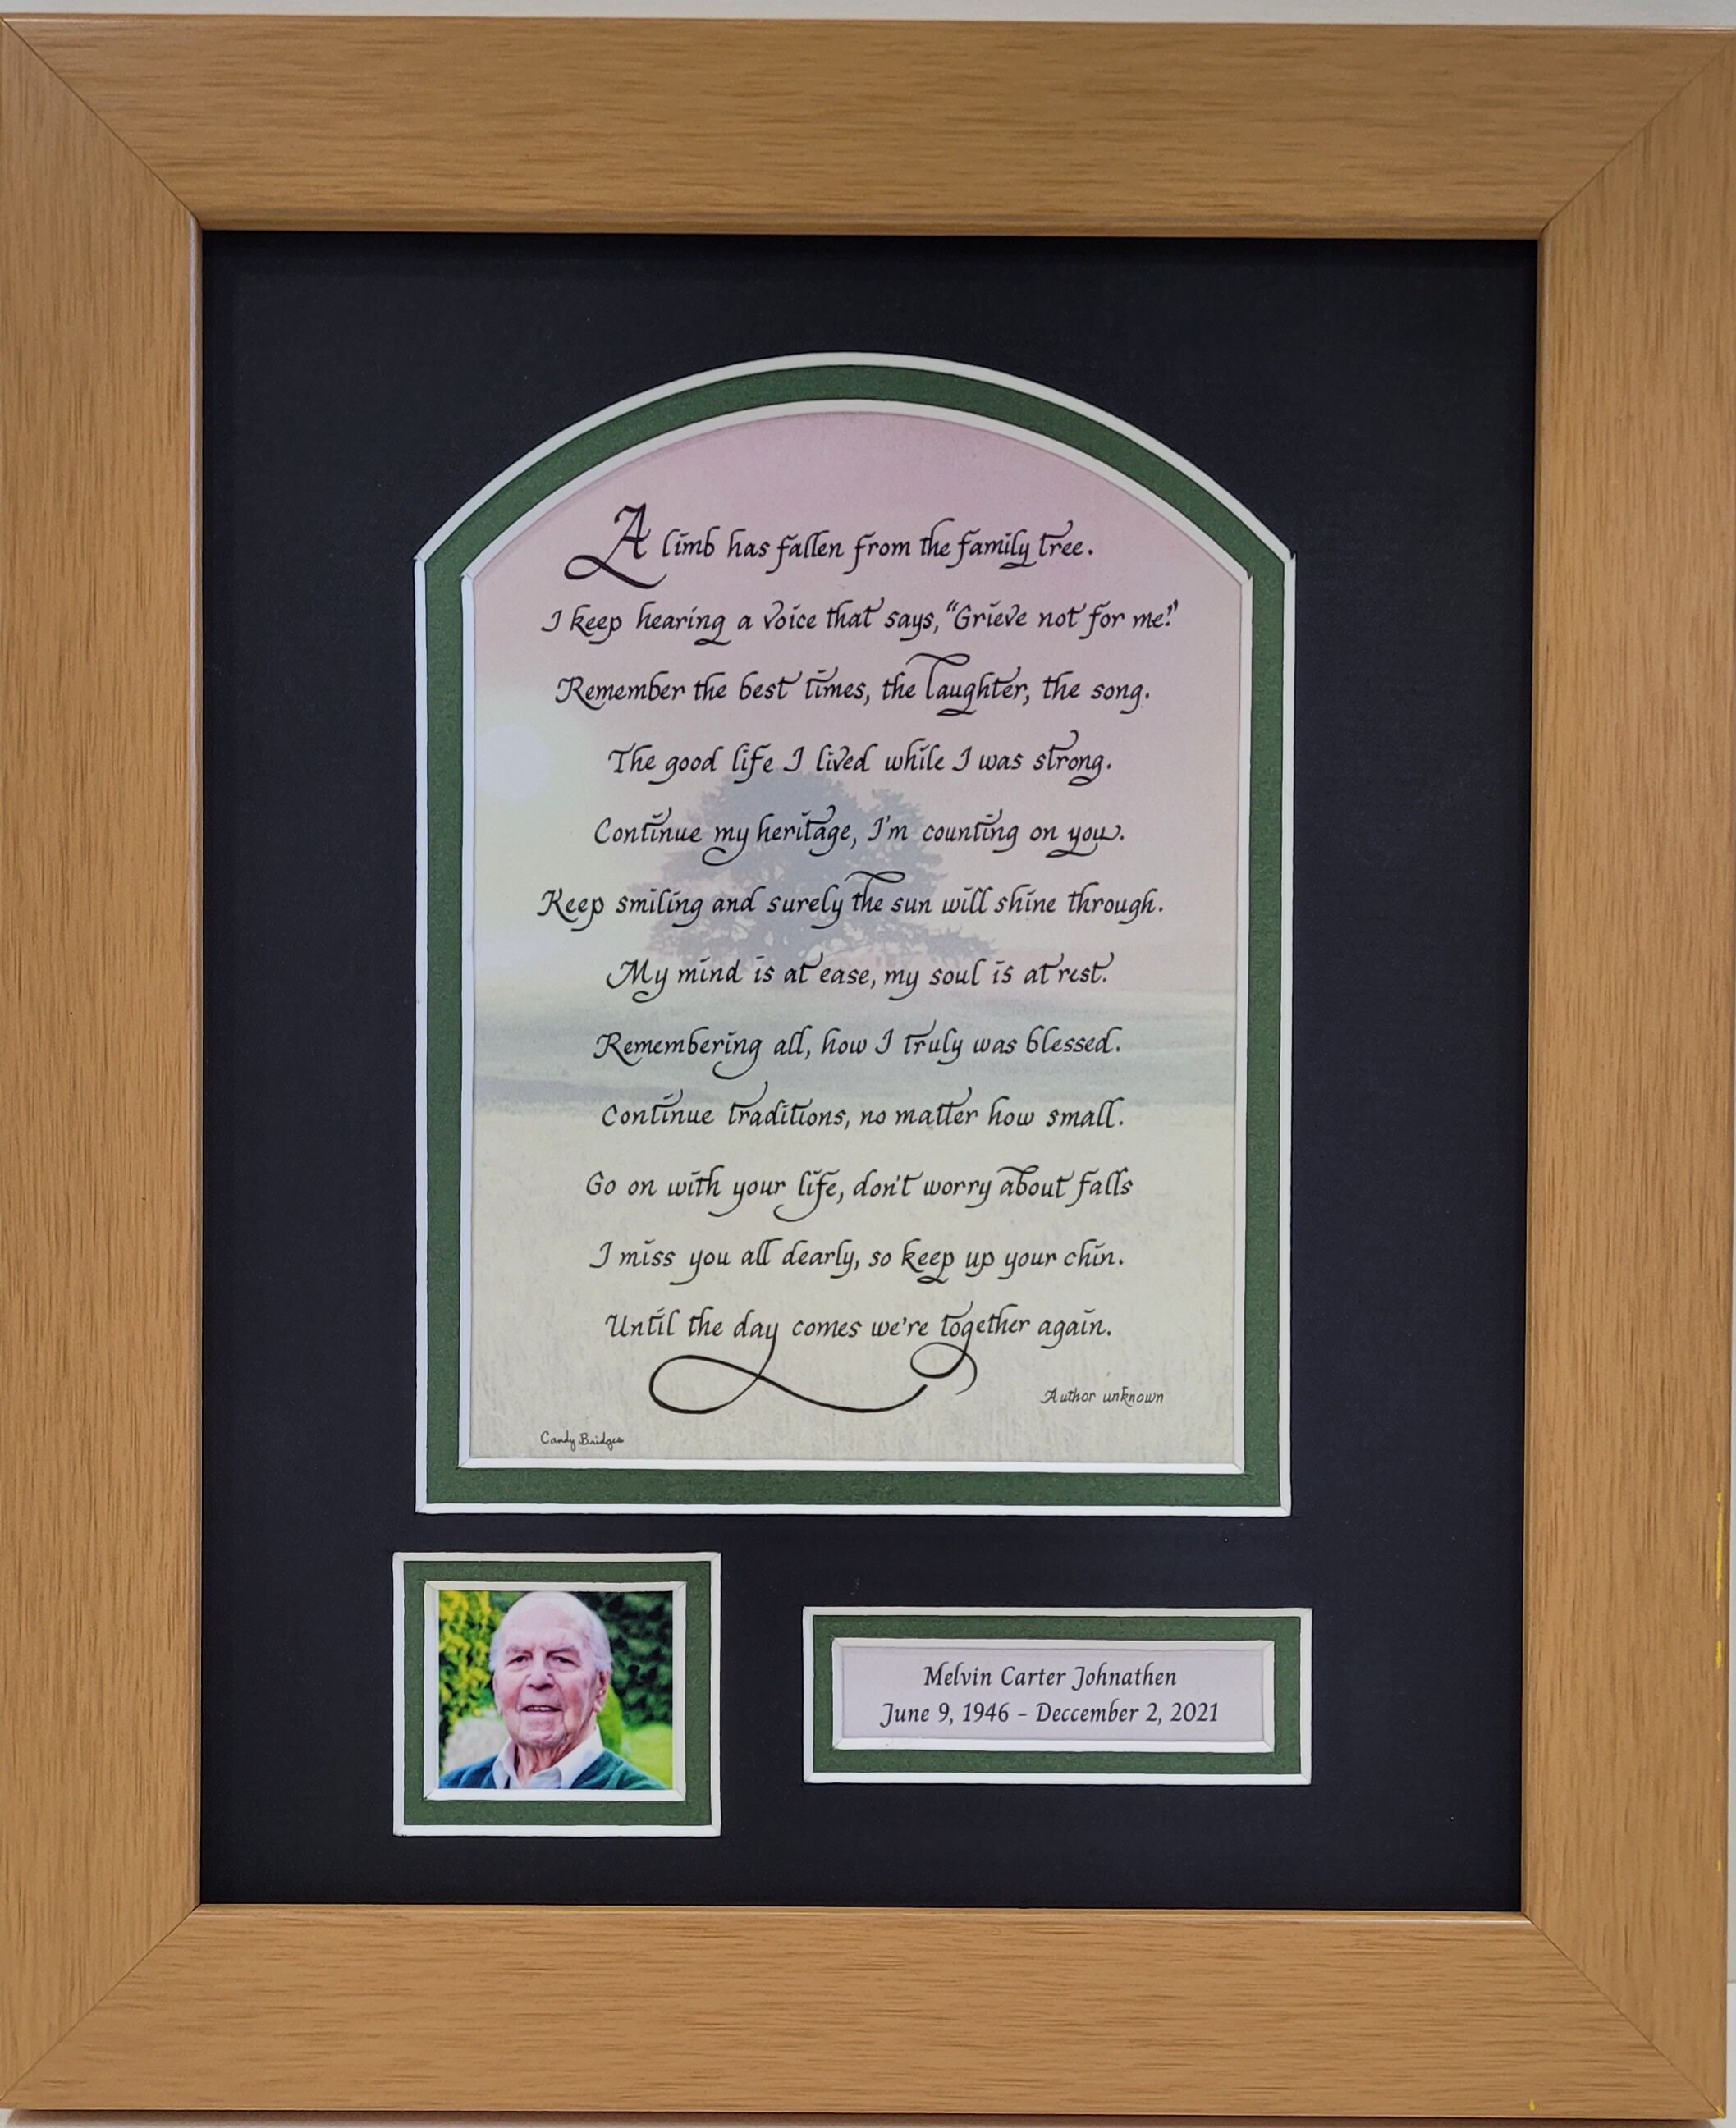 A limb has fallen from the family tree.
I keep hearing a voice that says, “Grieve not for me.”
Remember the best times, the laughter, the song.
The good life I lived while I was strong.
Continue my heritage, I'm counting on you.
Keep smiling and surely the sun will shine through.
My mind is at ease, my soul is at rest.
Remembering all, how I truly was blessed.
Continue traditions, no matter how small.
Go on with your life, don't worry about falls
I miss you all dearly, so keep up your chin.
Until the day comes we're together again.
Author unknown
Candy Bridges
Melvin Carter Johnathen
June 9, 1946 - Deccember 2, 2021